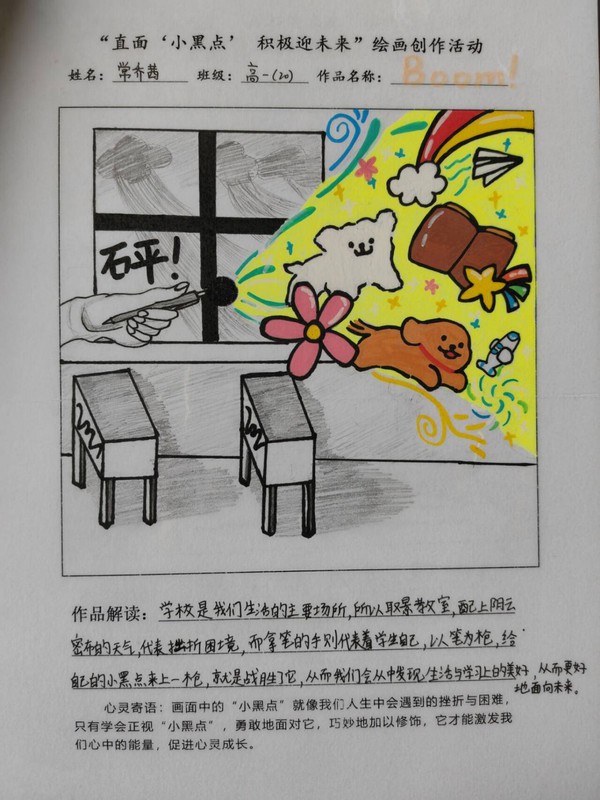 “直面‘小黑点’ 积极迎未来”绘画创作活动
姓名：常乔茜 班级：高一(20) 作品名称：Boom!
石平!
作品解读：学校是我们生活的主要场所,所以取景教室,配上阴云
密布的天气,代表挫折困境,而拿笔的手则代表着学生自己,以笔为枪,给
自己的小黑点来上一枪,就是战胜了它,从而我们会从中发现生活与学习上的美好,从而更好
地面向未来。
心灵寄语：画面中的“小黑点”就像我们人生中会遇到的挫折与困难，
只有学会正视“小黑点”，勇敢地面对它，巧妙地加以修饰，它才能激发我
们心中的能量，促进心灵成长。